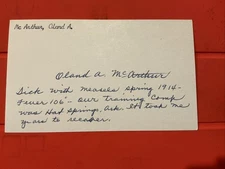 Mc Arthur, Oland A.
Oland A. McArthur
Sick with measles spring 1914-
Fever 106° - our training camp
was Hot Springs, Ark. It took me
years to recover.